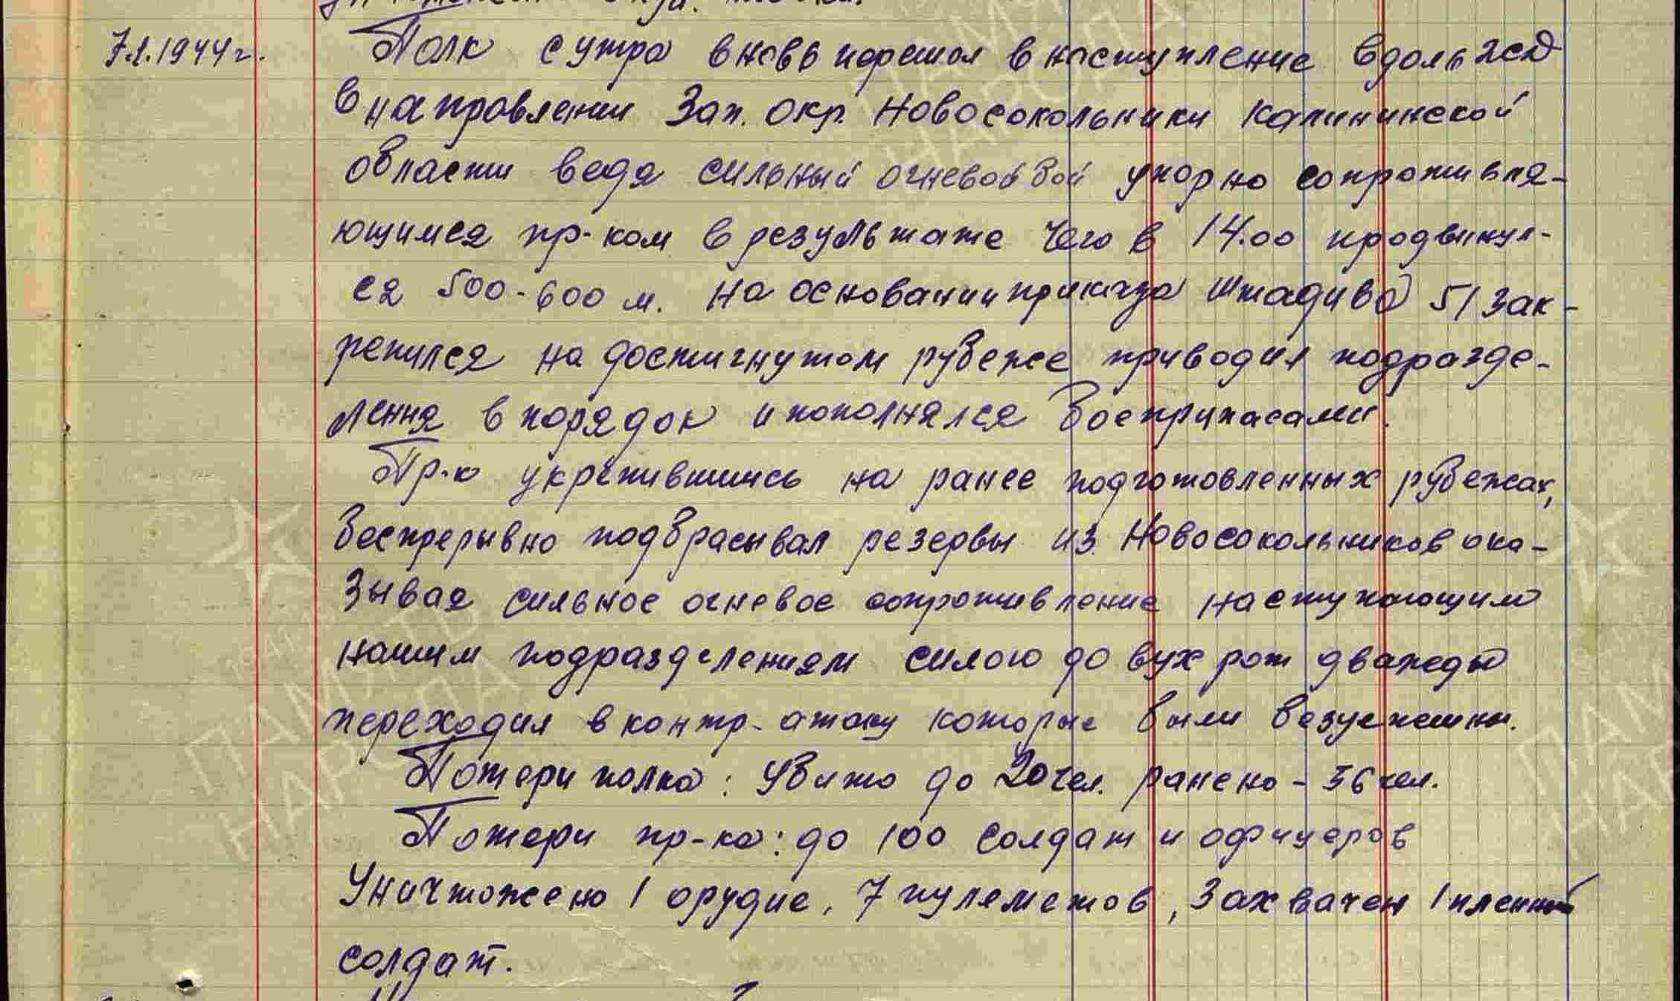 7.1.1944 г. Полк с утра вновь перешол в наступление вдоль жд
в направлении Зап. окр. Новосокольники Калининской
области ведя сильный огневой бой упорно сопротивля-
ющимся пр-ком в результате чего в 14.00 продвинул-
ся 500-600 м. на основании приказа штадива 51 зак-
репился на достигнутом рубеже приводил подразде-
ления в порядок и пополнялся боеприпасами.
Пр-к укрепившись на ранее подготовленных рубежах,
беспрерывно подбрасывал резервы из Новосокольников ока-
зывая сильное огневое сопротивление наступающим
нашим подразделениям силою до двух рот дважды
переходил в контр-атаку которые были безуспешны.
Потери полка: убито до 20 чел. ранено - 56 чел.
Потери пр-ка: до 100 солдат и офицеров
Уничтожено 1 орудие, 7 пулеметов, захвачен 1 пленный
солдат.
ПАМЯТЬ
НАРОДА